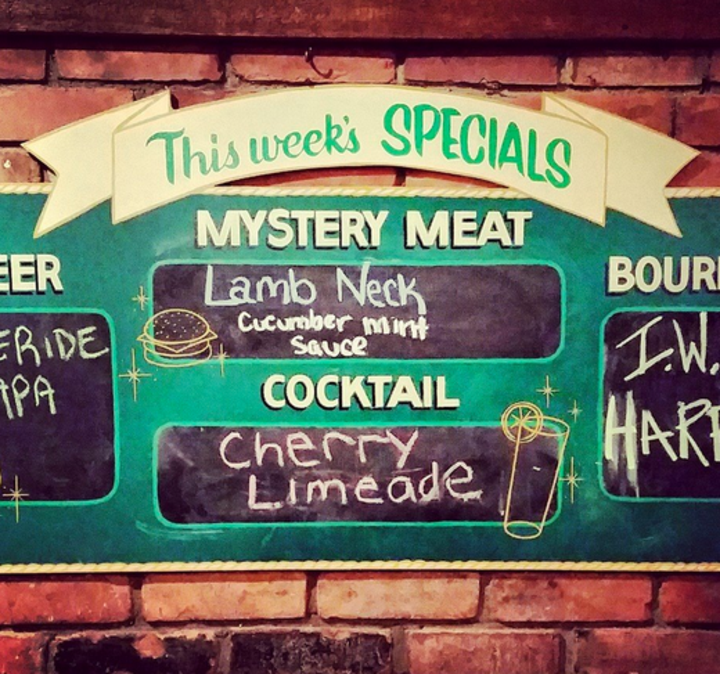 This week's SPECIALS
EER
ERIDE
APA
MYSTERY MEAT
Lamb Neck
Cucumber mint
Sauce
COCKTAIL
Cherry
Limeade
BOUR
I.W.
HAR